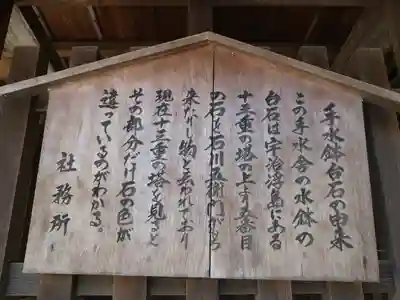 手水鉢台石の由来
この手水舎の水鉢の
台石は宇治浮島にある
十三重の塔の上より五番目
の石を石川五右衛門がもち
来たりし物と云われており
現在十三重の塔を見ると
その部分だけ石の色が
違っているのがわかる。
社務所